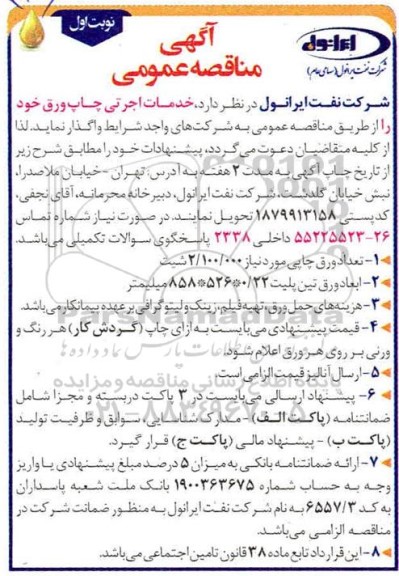 نوبت اول
آگهی
مناقصه عمومی
ایرانول
شرکت نفت ایرانول (سهامی عام)
شرکت نفت ایرانول در نظر دارد، خدمات اجرتی چاپ ورق خود
را از طریق مناقصه عمومی به شرکت‌های واجد شرایط واگذار نماید. لذا
از کلیه متقاضیان دعوت می‌گردد، پیشنهادات خود را مطابق شرح زیر
از تاریخ چاپ آگهی به مدت ۲ هفته به آدرس: تهران - خیابان ملاصدرا،
نبش خیابان گلدشت، شرکت نفت ایرانول، دبیرخانه محرمانه، آقای نجفی،
کدپستی ۱۸۷۹۹۱۳۱۵۸ تحویل نمایند. در صورت نیاز شماره تماس
۲۶-۵۵۲۲۵۵۲۳ داخلی ۲۳۳۸ پاسخگوی سوالات تکمیلی می‌باشد.
۱- تعداد ورق چاپی مورد نیاز ۲/۱۰۰/۰۰۰ شیت
۲- ابعاد ورق تین پلیت ۰/۲۲*۵۲۶*۸۵۸ میلیمتر
۳- هزینه‌های حمل ورق، تهیه فیلم، زینک و لیتوگرافی بر عهده پیمانکار می‌باشد.
۴- قیمت پیشنهادی می‌بایست به ازای چاپ (گردش کار) هر رنگ و
ورنی بر روی هر ورق اعلام شود.
۵- ارسال آنالیز قیمت الزامی است.
۶- پیشنهاد ارسالی می‌بایست در ۳ پاکت دربسته و مجزا شامل
ضمانتنامه (پاکت الف) - مدارک شناسایی، سوابق و ظرفیت تولید
(پاکت ب) - پیشنهاد مالی (پاکت ج) قرار گیرد.
۷- ارائه ضمانتنامه بانکی به میزان ۵ درصد مبلغ پیشنهادی یا واریز
وجه به حساب شماره ۱۹۰۰۳۶۳۶۷۵ بانک ملت شعبه پاسداران
به کد ۶۵۵۷/۳ به نام شرکت نفت ایرانول به منظور ضمانت شرکت در
مناقصه الزامی می‌باشد.
۸- این قرارداد تابع ماده ۳۸ قانون تامین اجتماعی می‌باشد.